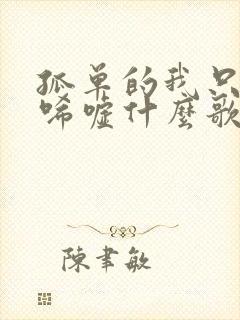 孤单的我只
唏嘘什麼歌
陳聿敏